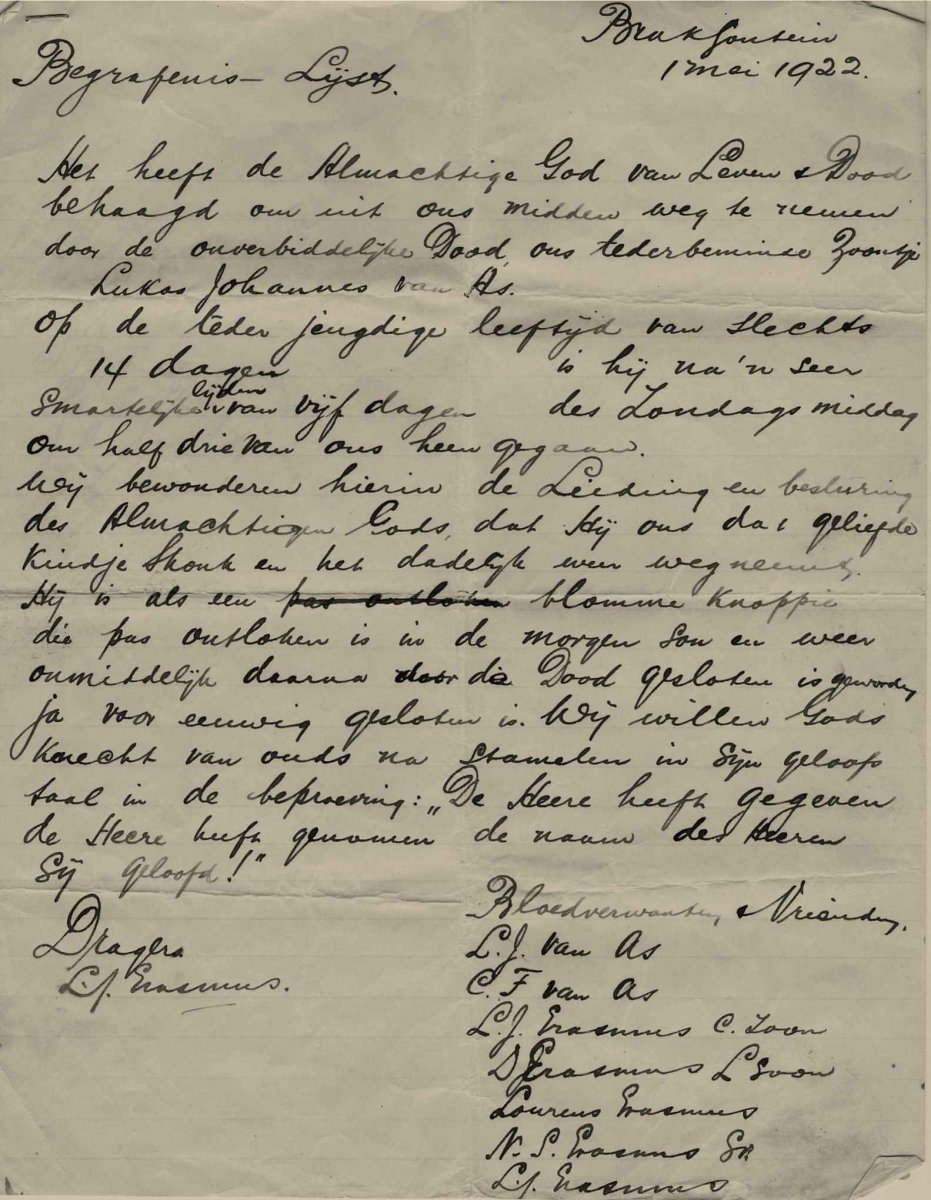 Brakfontein
1 Mei 1922.
Begrafenis- Lijst.
Het heeft de Almachtige God van Leven & Dood
behaagd om uit ons midden weg te nemen
door de onverbiddelijke Dood, ons tederbeminde Zoontje
Lukas Johannes van As.
Op de teder jeugdige leeftijd van slechts
14 dagen is hij na 'n seer
smartelijke lijden van vijf dagen des Zondags middag
om half drie van ons heen gegaan.
Wij bewonderen hierin de Leiding en besturing
des Almachtigen Gods, dat Hij ons dat geliefde
Kindje Skonk en het dadelijk weer wegneemt.
Hij is als een pas ontloken blomme Knoppie
die pas ontloken is in de morgen son en weer
onmiddelijk daarna door die Dood gesloten is geworden
ja voor eeuwig gesloten is. Wij willen Gods
Knecht van ouds na stamelen in Sijn geloofs
taal in de beproeving: „De Heere heeft gegeven
de Heere heeft genomen de naam des Heeren
Sij geloofd!"
Dragers
L.J. Erasmus.
Bloedverwanten & Vrienden.
L.J. van As
C. F van As
L.J. Erasmus C. Zoon
D Erasmus L Soon
Lourens Erasmus
N. S. Erasmus Sr.
L.J. Erasmus